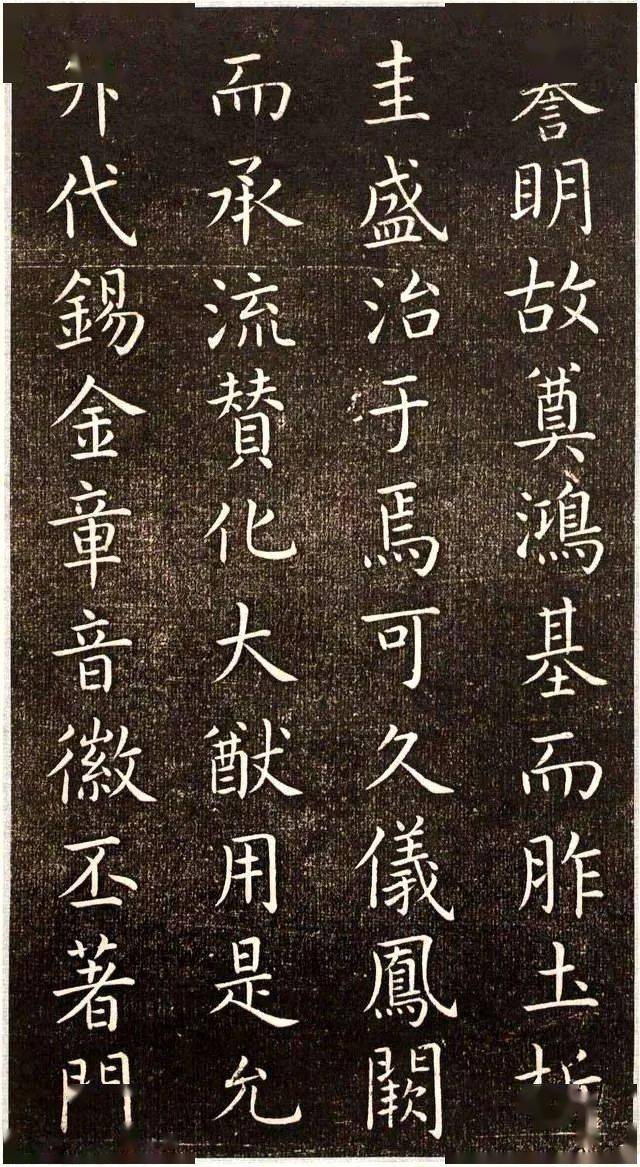 眀故奠鴻基而胙土
圭盛治于焉可久儀鳳闕
而承流贊化大猷用是允
升代錫金章音徽丕著門